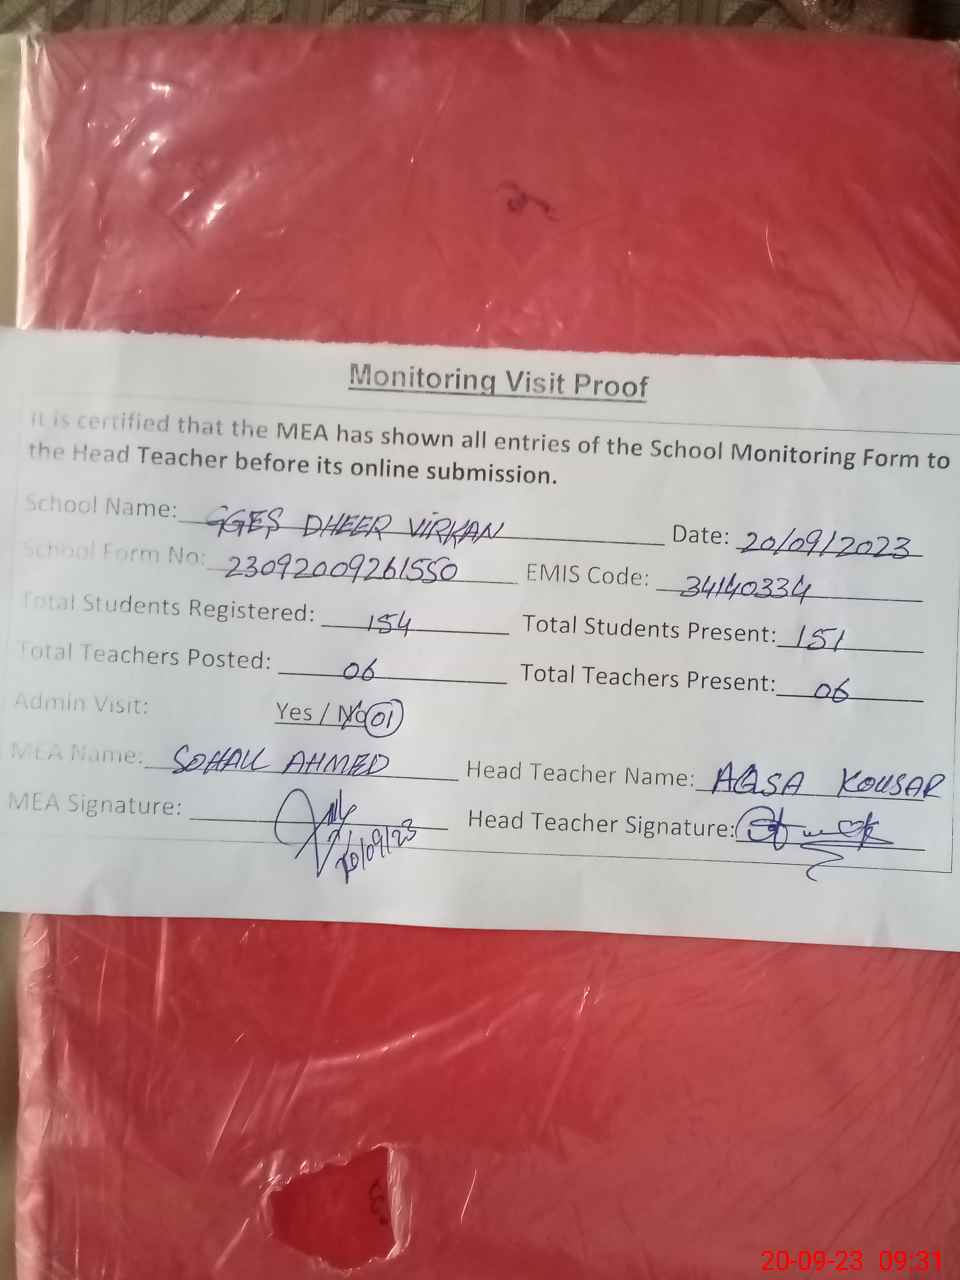 Monitoring Visit Proof
It is certified that the MEA has shown all entries of the School Monitoring Form to
the Head Teacher before its online submission.
School Name: GGES DHEER VIRKAN Date: 20/09/2023
School Form No: 23092009261550 EMIS Code: 34140334
Total Students Registered: 154 Total Students Present: 151
Total Teachers Posted: 06 Total Teachers Present: 06
Admin Visit: Yes / No 01
MEA Name: SOHAIL AHMED Head Teacher Name: AQSA KOUSAR
MEA Signature: Head Teacher Signature:
20/09/23
20-09-23 09:31